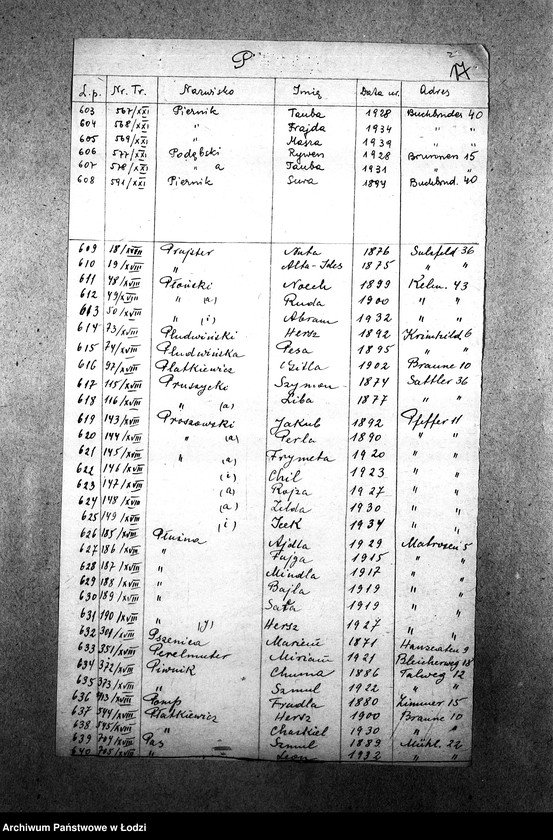 P
17
L.p. Nr. Tr. Nazwisko Imię Data ur. Adres
603 567/XXI Piernik Tauba 1928 Buchbinder 40
604 568/XXI " Frajda 1934 " "
605 569/XXI " Maria 1939 " "
606 577/XXI Podębski Rywen 1928 Brunnen 15
607 578/XXI " a Tauba 1931 " "
608 591/XXI Piernik Sura 1894 Buchbind. 40
609 18/XVIII Prajzter Nuta 1876 Sulzfeld 36
610 19/XVIII " Alta-Ides 1875 " "
611 48/XVIII Płoński Noech 1899 Kelm. 43
612 49/XVIII " (a) Ruda 1900 " "
613 50/XVIII " (i) Abram 1932 " "
614 73/XVIII Pludwiński Hersz 1892 Krimhild 6
615 74/XVIII Pludwińska Pesa 1895 " "
616 97/XVIII Płatkiewicz Gitla 1902 Braune 10
617 115/XVIII Pruszycki Szymon 1874 Sattler 36
618 116/XVIII " (a) Liba 1877 " "
619 143/XVIII Proszowski Jakub 1892 Pfeffer 11
620 144/XVIII " (a) Perla 1890 " "
621 145/XVIII " (a) Frymeta 1920 " "
622 146/XVIII (i) Chil 1923 " "
623 147/XVIII (a) Rojza 1927 " "
624 148/XVIII (a) Zelda 1930 " "
625 149/XVIII (i) Icek 1934 " "
626 185/XVIII Płuzna Ajdla 1929 Matrosen 5
627 186/XVIII " Fajga 1915 " "
628 187/XVIII " Mindla 1917 " "
629 188/XVIII " Bajla 1919 " "
630 189/XVIII " Sara 1919 " "
631 190/XVIII " (y) Hersz 1927 " "
632 301/XVIII Pszenica Mariem 1871 Hanseaten 9
633 351/XVIII Perelmuter Miriam 1921 Bleicherweg 18
634 372/XVIII Piwnik Chuma 1886 Talweg 12
635 373/XVIII " Samul 1922 " "
636 413/XVIII Pomp Fradla 1880 Zimmer 15
637 544/XVIII Płatkiewicz Hersz 1900 Braune 10
638 545/XVIII " Chaskiel 1930 " "
639 704/XVIII Pas Szmul 1889 Mühl. 22
640 705/XVIII " Leon 1932 " "
Archiwum Państwowe w Łodzi